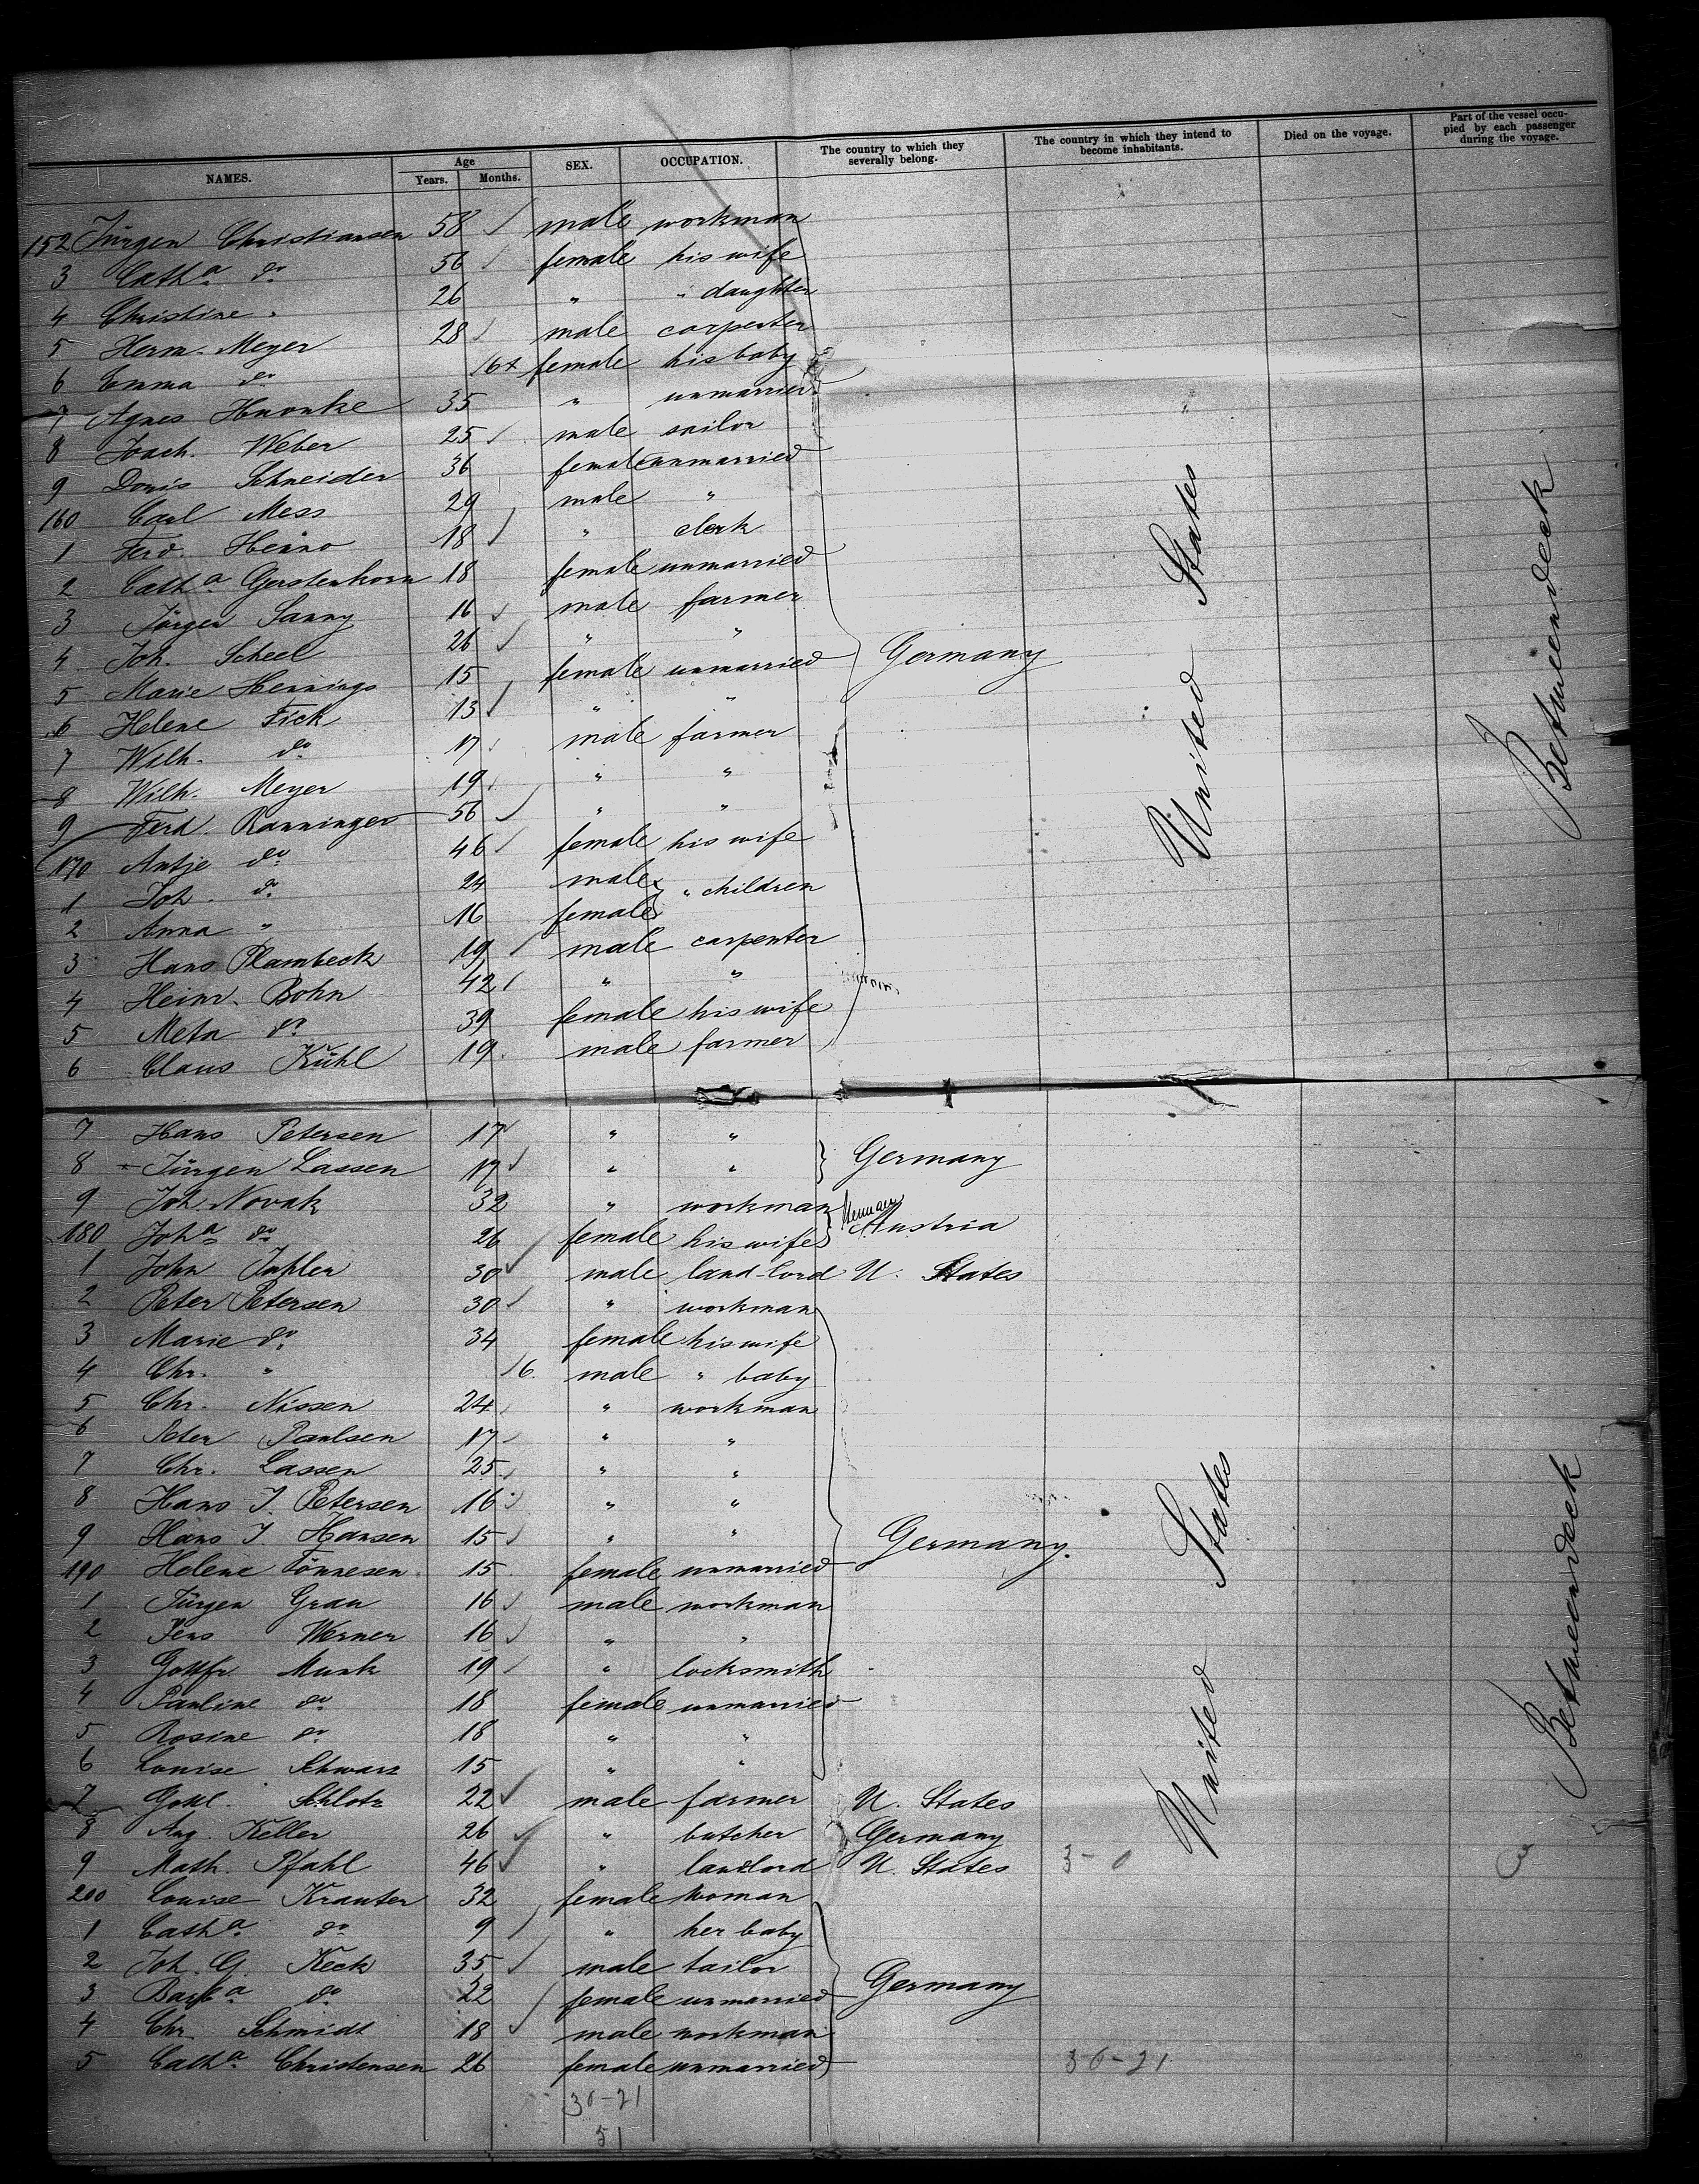 NAMES. Age Years. Months. SEX. OCCUPATION. The country to which they severally belong. The country in which they intend to become inhabitants. Died on the voyage. Part of the vessel occupied by each passenger during the voyage.
152 Jürgen Christiansen 58 male workman
3 Catha do 56 female his wife
4 Christine " 26 " " daughter
5 Herm. Meyer 28 male carpenter
6 Emma do 6 female his baby
7 Agnes 35 " unmarried
8 Joach. Weber 25 male sailor
9 Doris Schneider 36 female unmarried
160 Carl Mess 29 male "
1 Ferd. Henno 18 " clerk
2 Catha Gerstenkorn 18 female unmarried
3 Jürgen Sanny 16 male farmer
4 Joh. Scheel 26 " "
5 Marie Hennings 15 female unmarried Germany
6 Helene Fick 13 " "
7 Wilh. do 17 male farmer
8 Wilh. Meyer 19 " "
9 Ferd. Ranninger 56 " "
170 Antje do 46 female his wife
1 Joh. do 24 male " children
2 Anna " 16 female
3 Hans Plambeck 19 male carpenter
4 Heinr. Bohn 42 " "
5 Meta do 39 female his wife
6 Claus Kühl 19 male farmer
United States
Betweendeck
7 Hans Petersen 17 " "
8 Jürgen Lassen 17 " " Germany
9 Joh. Novak 32 " workman
180 Joha do 26 female his wife Austria
1 John 30 male land-lord U. States
2 Peter Petersen 30 " workman
3 Marie do 34 female his wife
4 Chr. " 6 male " baby
5 Chr. Nissen 24 " workman
6 Peter Paulsen 17 " "
7 Chr. Lassen 25 " "
8 Hans J. Petersen 16 " "
9 Hans J Hansen 15 " " Germany.
190 Helene Tönnesen 15 female unmarried
1 Jürgen Grau 16 male workman
2 Jens Werner 16 " "
3 Gottfr Munk 19 " locksmith
4 Pauline do 18 female unmarried
5 Rosine do 18 " "
6 Louise Schwarz 15 " "
7 Gottl. Schlotz 22 male farmer U. States
8 Aug. Keller 26 " butcher Germany
9 Math. Pfahl 46 " landlord U. States 3-0
200 Louise Krauter 32 female woman
1 Catha do 9 " her baby
2 Joh. G. Keck 35 male tailor
3 Barba do 22 female unmarried Germany
4 Chr. Schmidt 18 male workman
5 Catha Christensen 26 female unmarried 36-21
United States
Betweendeck
30-21
51